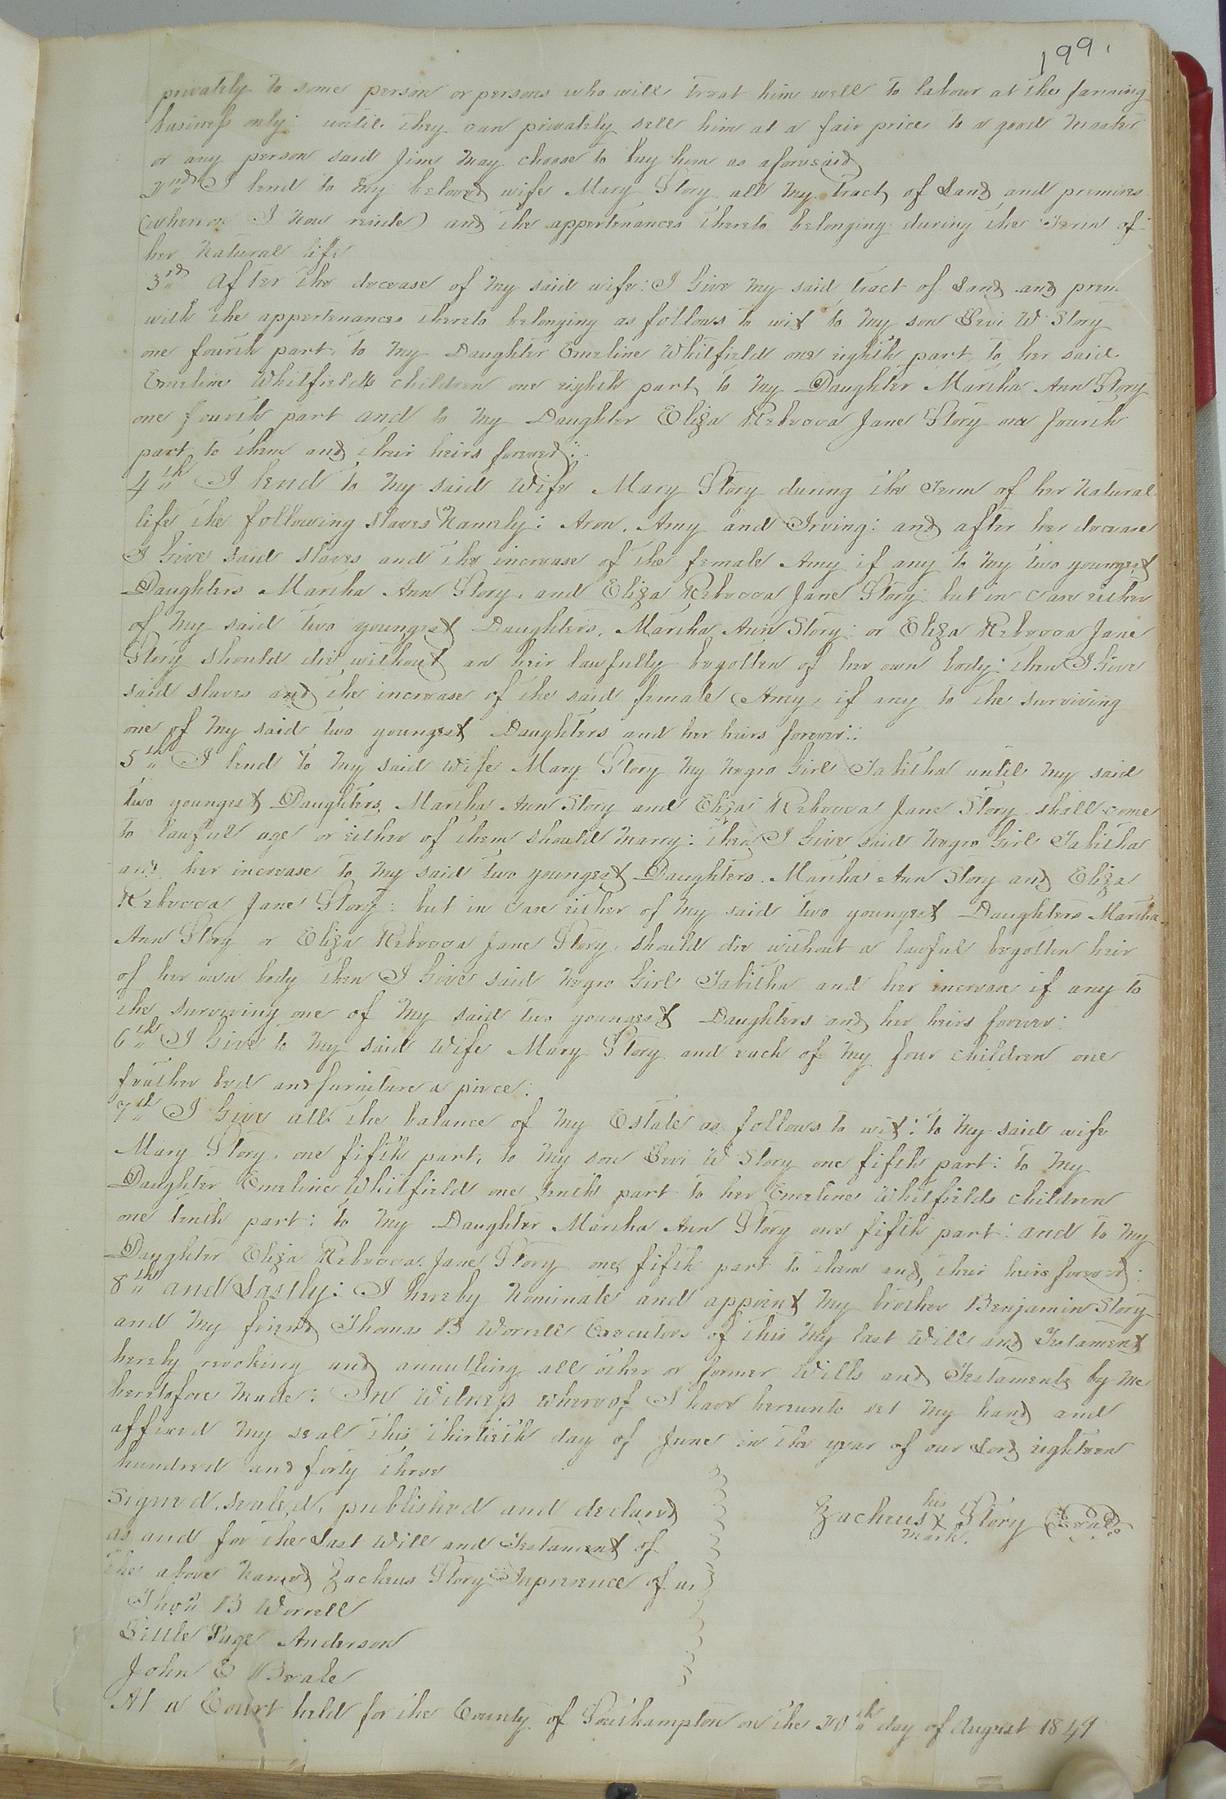 199.
privately to some person or persons who will treat him well to labour at the farming
business only: until they can privately sell him at a fair price to a good master
or any person said Jim may choose to buy him as aforesaid
2nd I lend to my beloved wife Mary Story all my tract of Land and premises
(whereon I now reside) and the appertenances thereto belonging during the Term of
her natural life
3rd After the decease of my said wife: I Give my said tract of Land and prem
with the appertenances thereto belonging as follows to wit to my son Levi W Story
one fourth part: to my Daughter Emeline Whitfield one eighth part, to her said
Emeline Whitfields children one eighth part, to my Daughter Martha Ann Story
one fourth part and to my Daughter Eliza Rebecca Jane Story one fourth
part to them and their heirs forever:
4th I lend to my said Wife Mary Story during the Term of her natural
life the following slaves Namely: Aron, Amy and Irving: and after her decease
I Give said slaves and the increase of the female Amy if any to my two youngest
Daughters Martha Ann Story, and Eliza Rebecca Jane Story but in case either
of my said two youngest Daughters, Martha Ann Story: or Eliza Rebecca Jane
Story should die without an heir lawfully begotten of her own body: then I Give
said slaves and the increase of the said female Amy, if any to the surviving
one of my said two youngest Daughters and her heirs forever:
5th I lend to my said wife Mary Story my negro Girl Tabitha until my said
two youngest Daughters, Martha Ann Story and Eliza Rebecca Jane Story shall come
to lawful age or either of them should marry: then I Give said negro Girl Tabitha
and her increase to my said two youngest Daughters. Martha Ann Story and Eliza
Rebecca Jane Story: but in case either of my said two youngest Daughters Martha
Ann Story or Eliza Rebecca Jane Story, should die without a lawful begotten heir
of her own body then I Give said negro Girl Tabitha and her increase if any to
the surviving one of my said two youngest Daughters and her heirs forever:
6th I Give to my said Wife Mary Story and each of my four children one
feather bed and furniture a piece:
7th I Give all the balance of my Estate as follows to wit: to my said wife
Mary Story, one fifth part, to my son Levi W Story one fifth part: to my
Daughter Emeline Whitfield one tenth part to her Emeline Whitfields children
one tenth part: to my Daughter Martha Ann Story one fifth part: and to my
Daughter Eliza Rebecca Jane Story one fifth part to them and their heirs forever:
8th and Lastly: I hereby nominate and appoint my brother Benjamin Story
and my friend Thomas B Worrell Executors of this my last Will and Testament
hereby revoking and annulling all other or former Wills and Testaments by me
heretofore made: In Witness whereof I have hereunto set my hand and
affixed my seal this thirtieth day of June in the year of our Lord eighteen
hundred and forty three
Signed, sealed, published and declared
as and for the Last Will and Testament of
the above named Zacheus Story in presence of us
his
Zacheus X Story (Seal)
mark.
Thos B Worrell
Little Page Anderson
John E Beale
At a Court held for the County of Southampton on the 20th day of August 1849